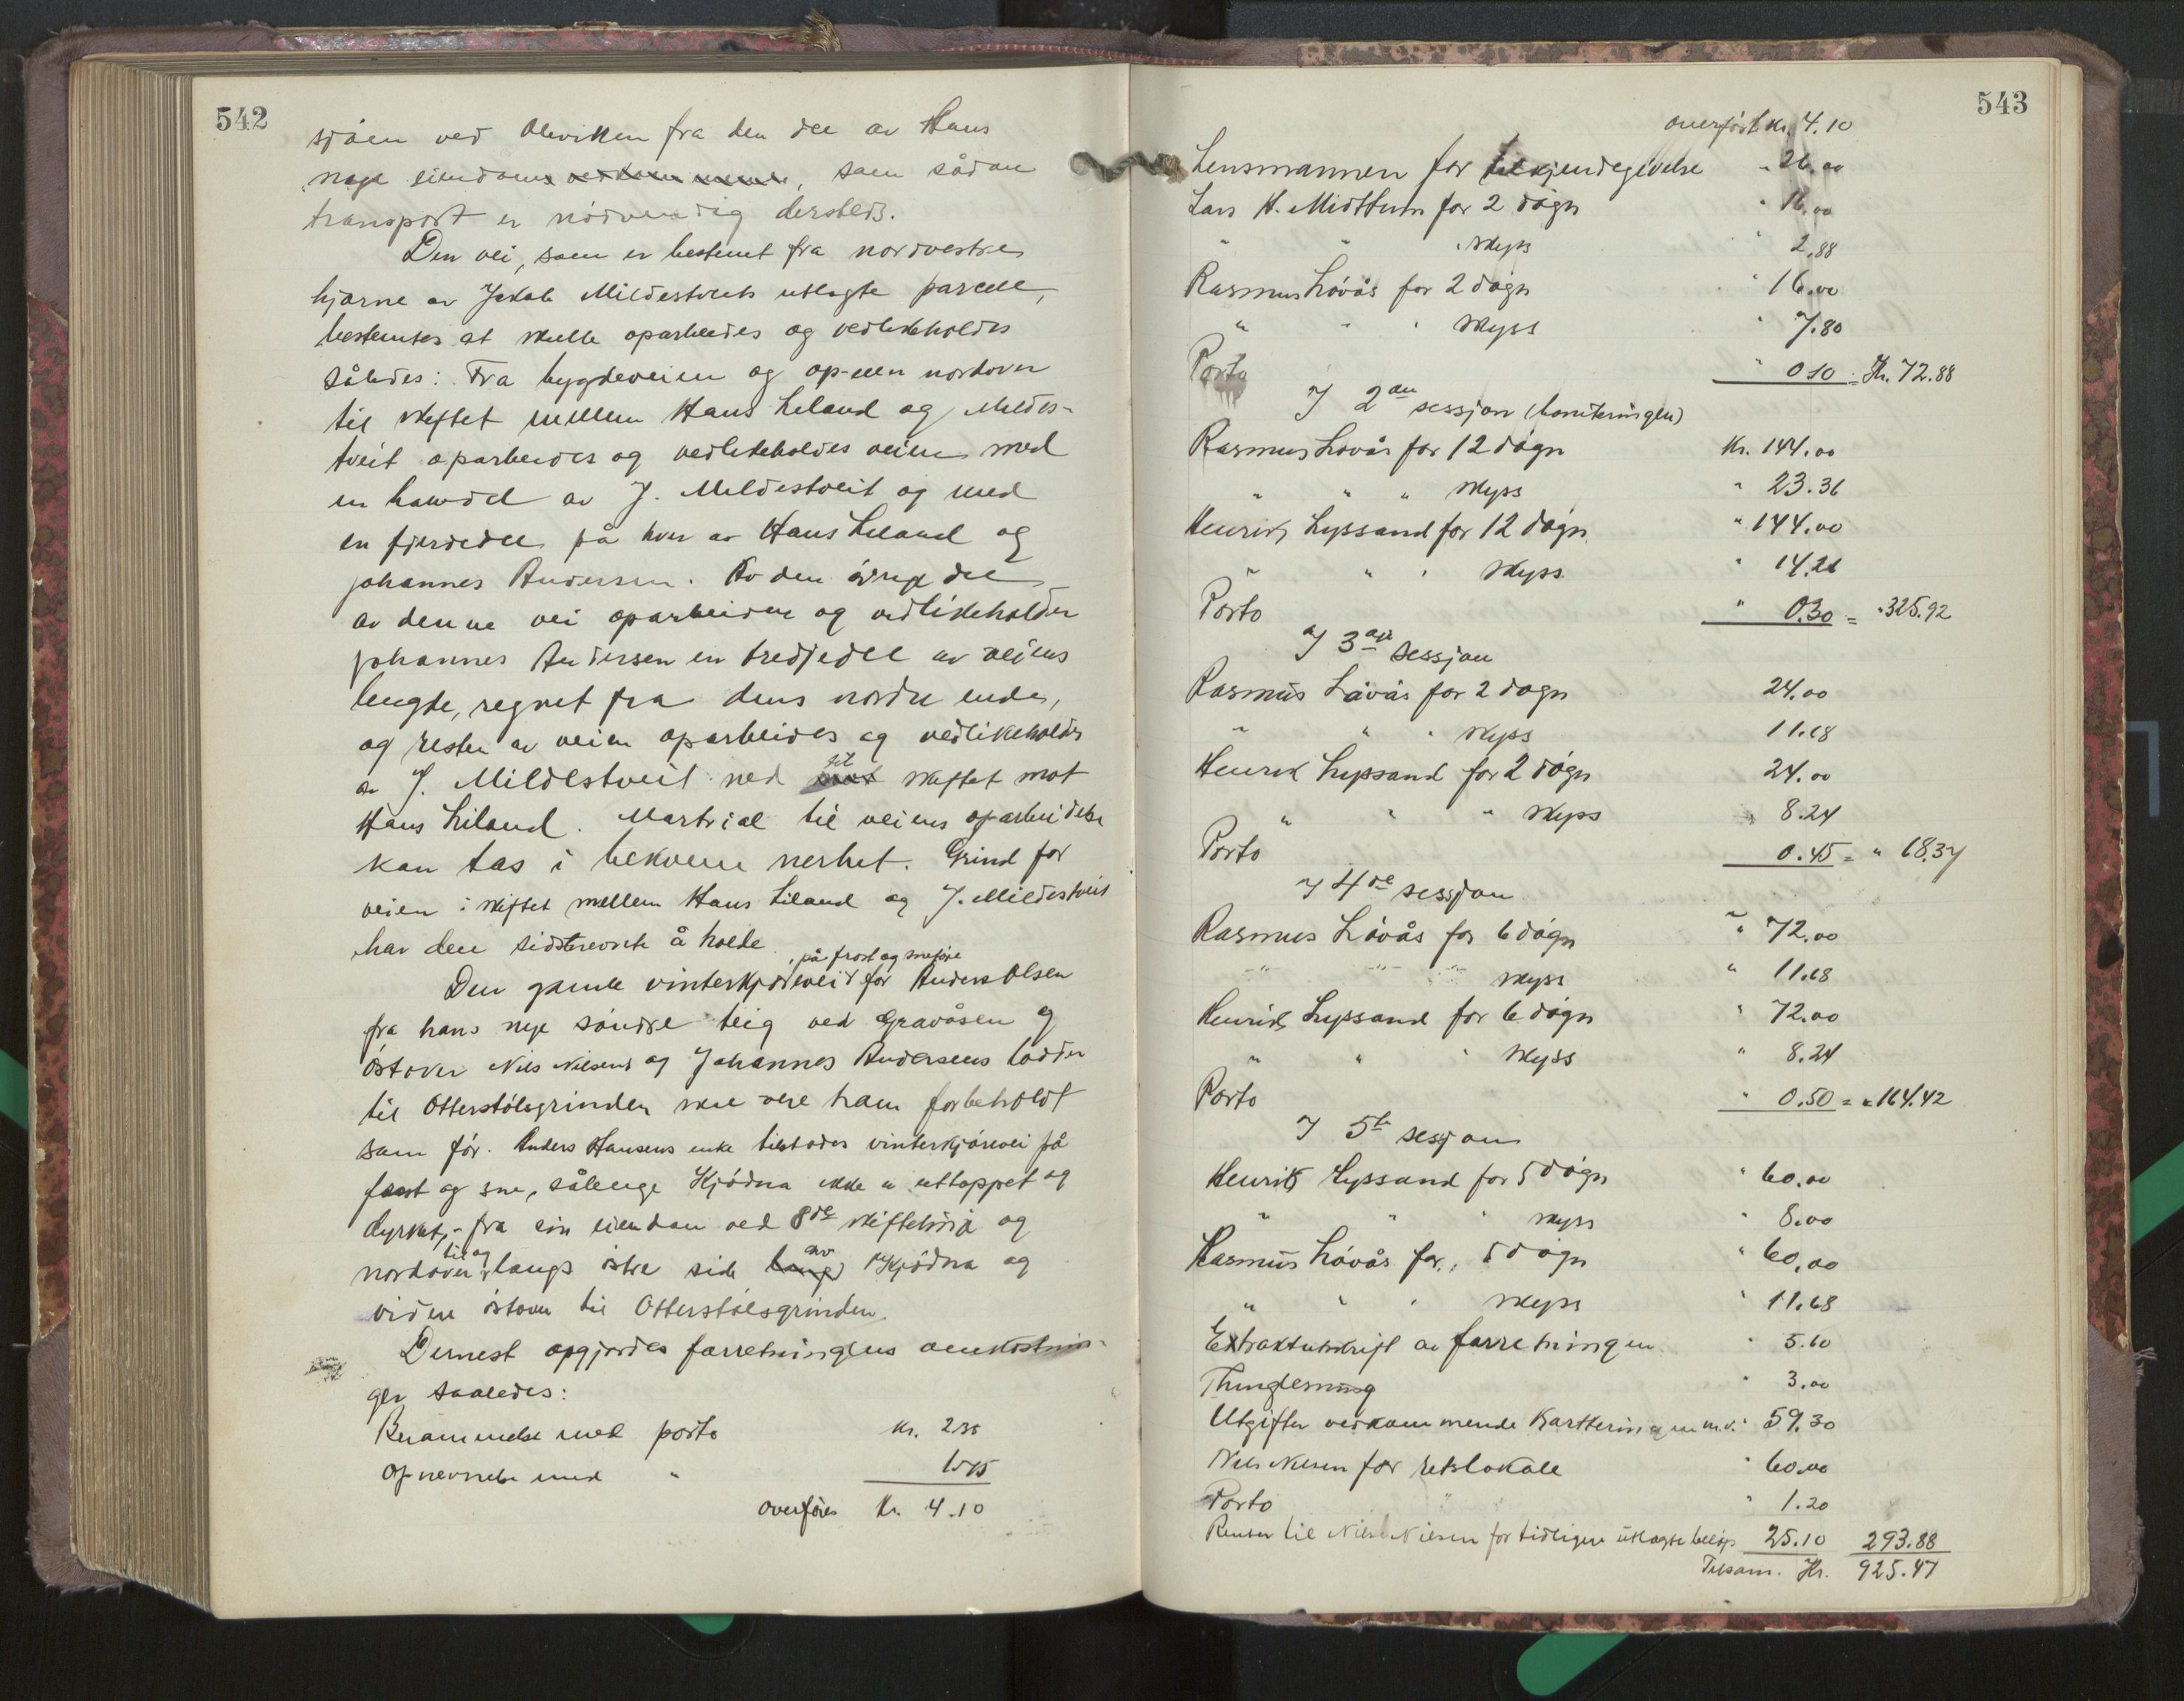 542
sjøen ved Olevikken fra den del av Hans
nye eiendom, som sådan
transport er nødvendig dersteds.
Den vei, som er bestemt fra nordvestre
hjørne av Jakob Mildestveits utlagte parcel,
bestemtes at skulle oparbeides og vedlikeholdes
således: Fra bygdeveien og op-over nordover
til skiftet mellem Hans Liland og Mildes-
tveit oparbeides og vedlikeholdes veien med
en halvdel av J. Mildestveit og med
en fjerdedel på hver av Hans Liland og
Johannes Andersen. Av den øvrige del
av denne vei oparbeider og vedlikeholder
Johannes Andersen en tredjedel av veiens
lengde, regnet fra dens nordre ende,
og resten av veien oparbeides og vedlikeholdes
av J. Mildestveit ned til skiftet mot
Hans Liland. Matrial til veiens oparbeidelse
kan tas i bekvem nerhet. Grind for
veien i skiftet mellem Hans Liland og J. Mildestveit
har den sidstnevnte å holde.
Den gamle vinterkjørevei, på frost og sneføre for Anders Olsen
fra hans nye søndre teig ved Gravåsen og
østover Nils Nilsens og Johannes Andersens lodder
til Otterstølsgrinden skal vere ham forbeholdt
som før. Anders Hansens enke tilstodes vinterkjørevei på
frost og sne, sålenge Kjødna ikke er uttappet og
dyrket, - fra sin eiendom ved 8de skiftelinje og
nordover til og langs østre side av Kjødna og
videre østover til Otterstølsgrinden.
Dernest opgjordes forretningens omkostnin-
ger saaledes:
Berammelse med porto Kr. 2.35
Opnevnelse med " 1.75
overføres Kr. 4.10
543
overført kr. 4.10
Lensmannen for tilkjendegivelse " 26.00
Lars H. Midttun for 2 døgn " 16.00
" " " skyss " 2.88
Rasmus Løvås for 2 døgn " 16.00
" " " skyss " 7.80
Porto " 0.10 = Kr. 72.88
I 2an sessjon (boniteringen)
Rasmus Løvås for 12 døgn Kr. 144.00
" " " skyss " 23.36
Henrik Lyssand for 12 døgn " 144.00
" " " skyss " 14.26
Porto " 0.30 = " 325.92
I 3dje sessjon
Rasmus Løvås for 2 døgn 24.00
" " " skyss 11.68
Henrik Lyssand for 2 døgn 24.00
" " " skyss " 8.24
Porto 0.45 = " 68.37
I 4de sessjon
Rasmus Løvås for 6 døgn " 72.00
" " " skyss " 11.68
Henrik Lyssand for 6 døgn " 72.00
" " " skyss " 8.24
Porto " 0.50 = " 164.42
I 5te sesjon
Henrik Lyssand for 5 døgn " 60.00
" " " skyss " 8.00
Rasmus Løvås for, 5 døgn " 60.00
" " " skyss " 11.68
Extraktutskrift av forretningen " 5.60
Thinglesning " 3.00
Utgifter vedkommende kartteringen m.v. " 59.30
Nils Nilsen for retslokale " 60.00
Porto " " 1.20
Renter til Nils Nilsen for tidligere utlagte beløp 25.10 293.88
Tilsam. Kr. 925.47